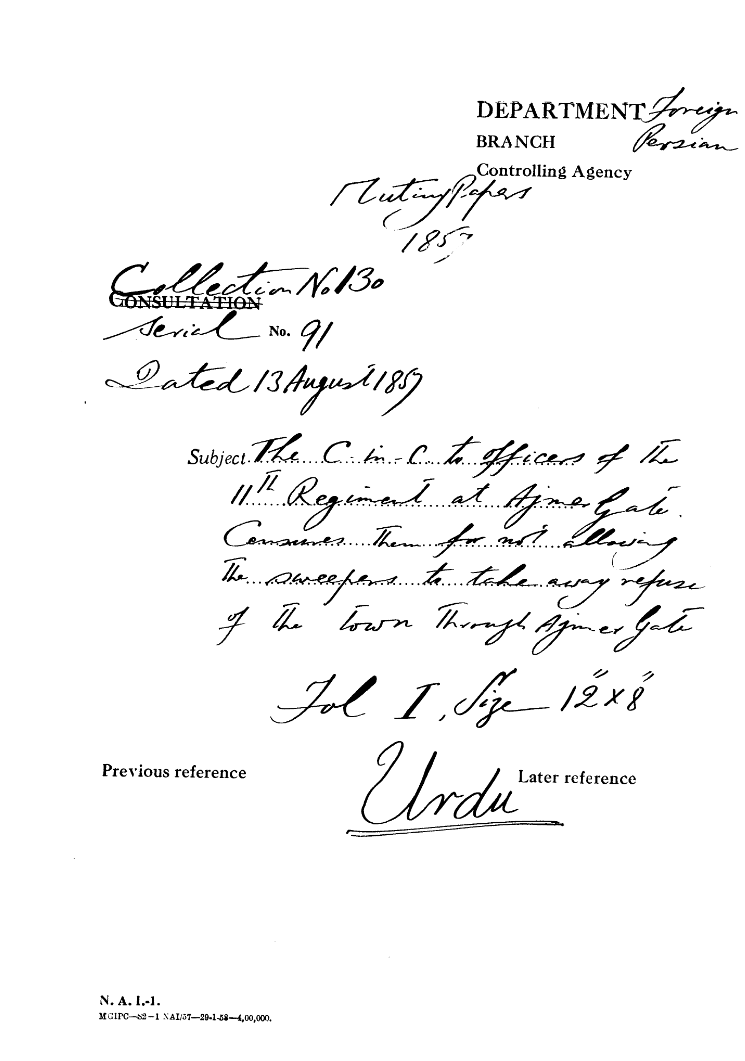 DEPARTMENT Foreign
BRANCH Persian
Controlling Agency
Mutiny Papers
1857
Collection No 130
CONSULTATION
Serial No. 91
Dated 13 August 1857
Subject. The C-in-C to officers of the
11th Regiment at Ajmer Gate.
Censures them for not allowing
the sweepers to take away refuse
of the town through Ajmer Gate
Fol I, Size 12" x 8"
Previous reference
Urdu
Later reference
N. A. I.-1.
MGIPC—S2—1 NAI/57—29-1-58—4,00,000.